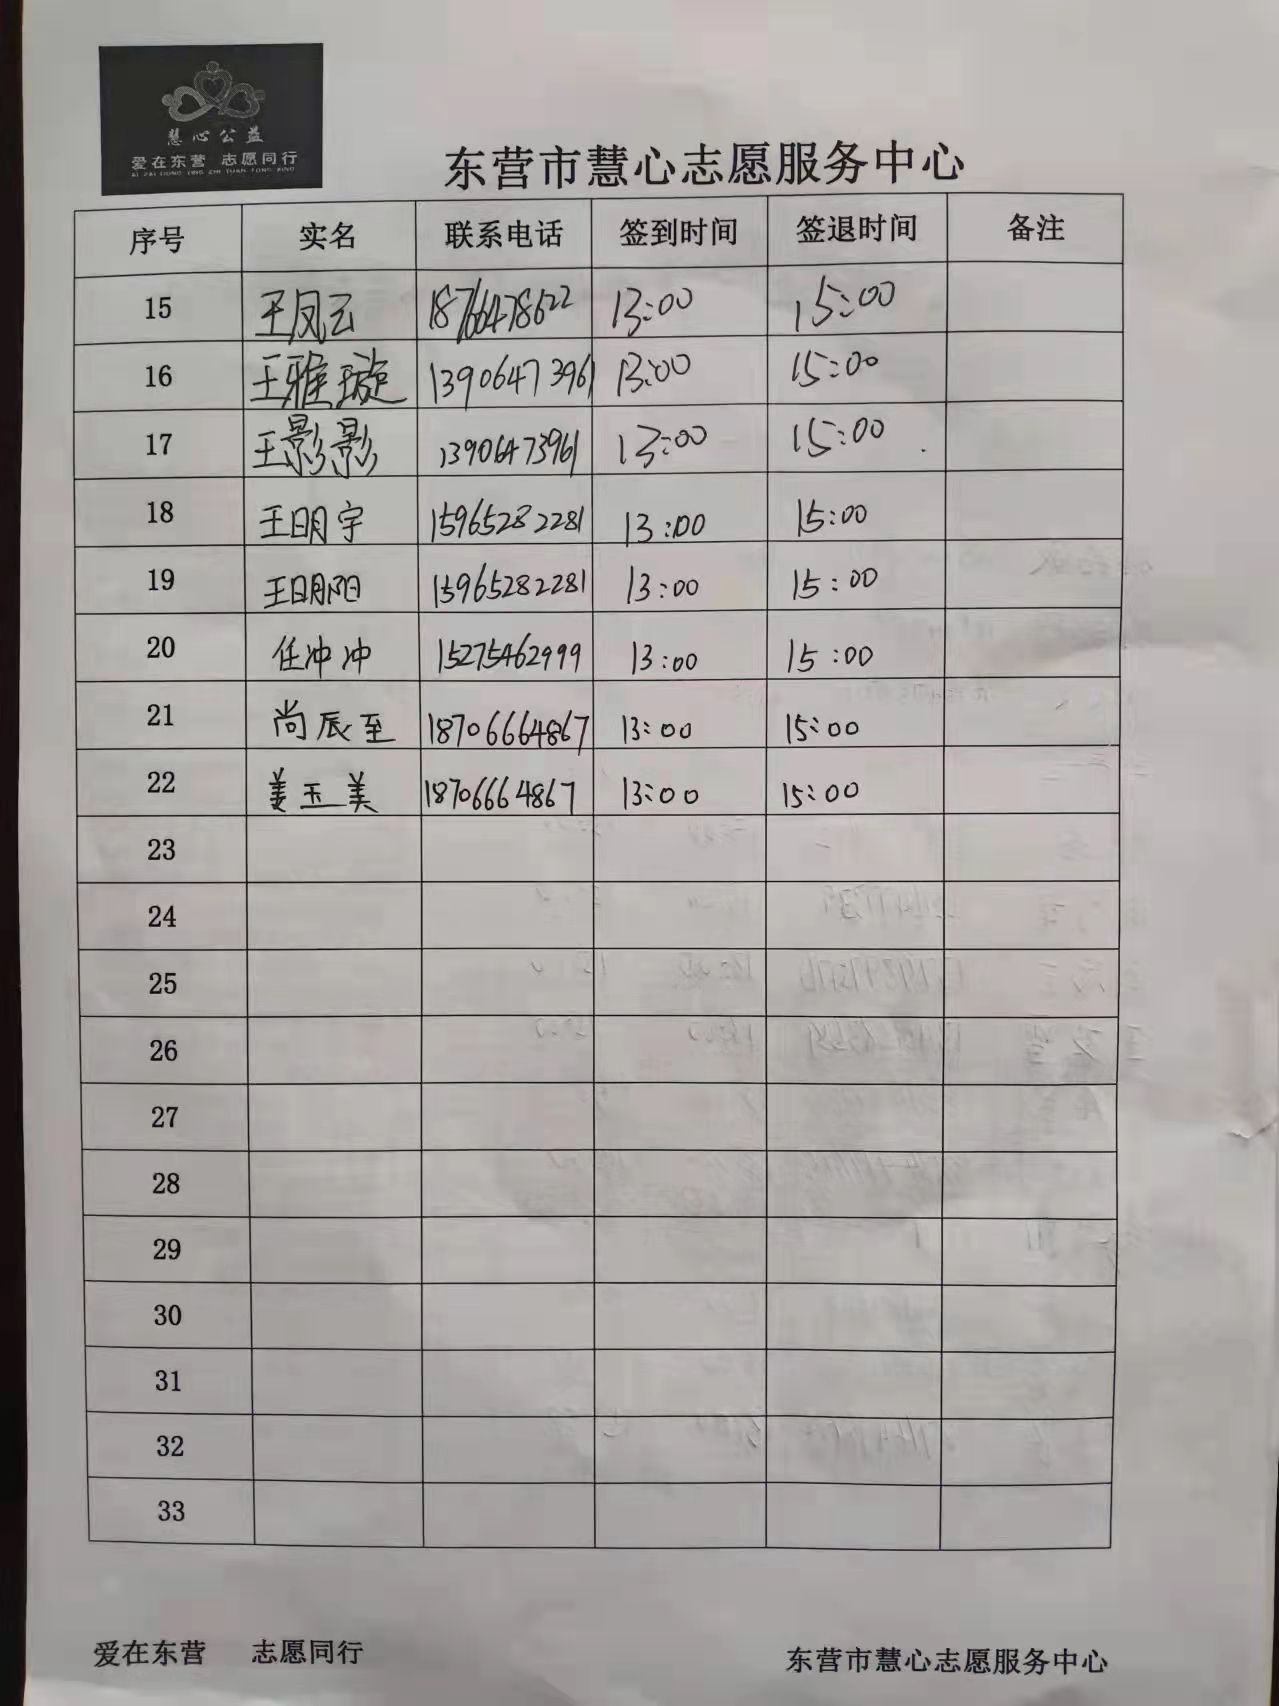 慧心公益
爱在东营 志愿同行
AI ZAI DONG YING ZHI YUAN TONG XING
东营市慧心志愿服务中心
序号 实名 联系电话 签到时间 签退时间 备注
15 王凤云 18766478622 13:00 15:00
16 王雅璇 13906473961 13:00 15:00
17 王影影 13906473961 13:00 15:00
18 王明宇 15965282281 13:00 15:00
19 王明阳 15965282281 13:00 15:00
20 任冲冲 15275462999 13:00 15:00
21 尚辰至 18706664867 13:00 15:00
22 姜玉美 18706664867 13:00 15:00
23
24
25
26
27
28
29
30
31
32
33
爱在东营 志愿同行
东营市慧心志愿服务中心